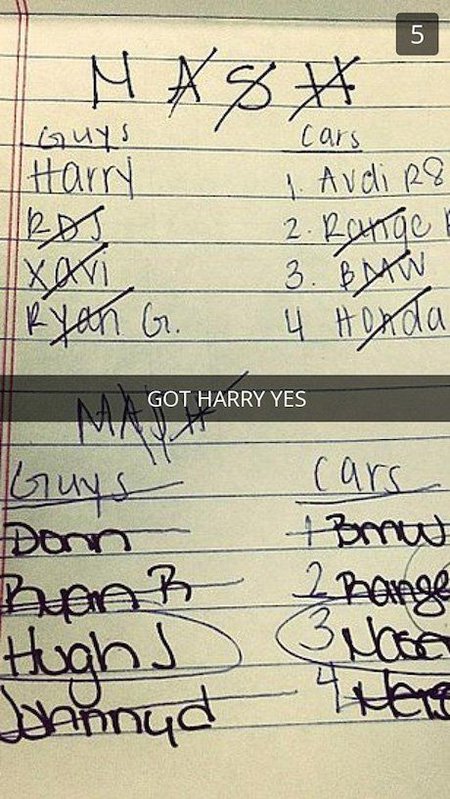 5
M A S H
Guys Cars
Harry 1. Audi R8
RDJ 2. Range
Xavi 3. BMW
Ryan G. 4 Honda
GOT HARRY YES
MASH
Guys Cars
Donn 1 BMW
Ryan R 2 Range
Hugh J 3
Johnnyd 4